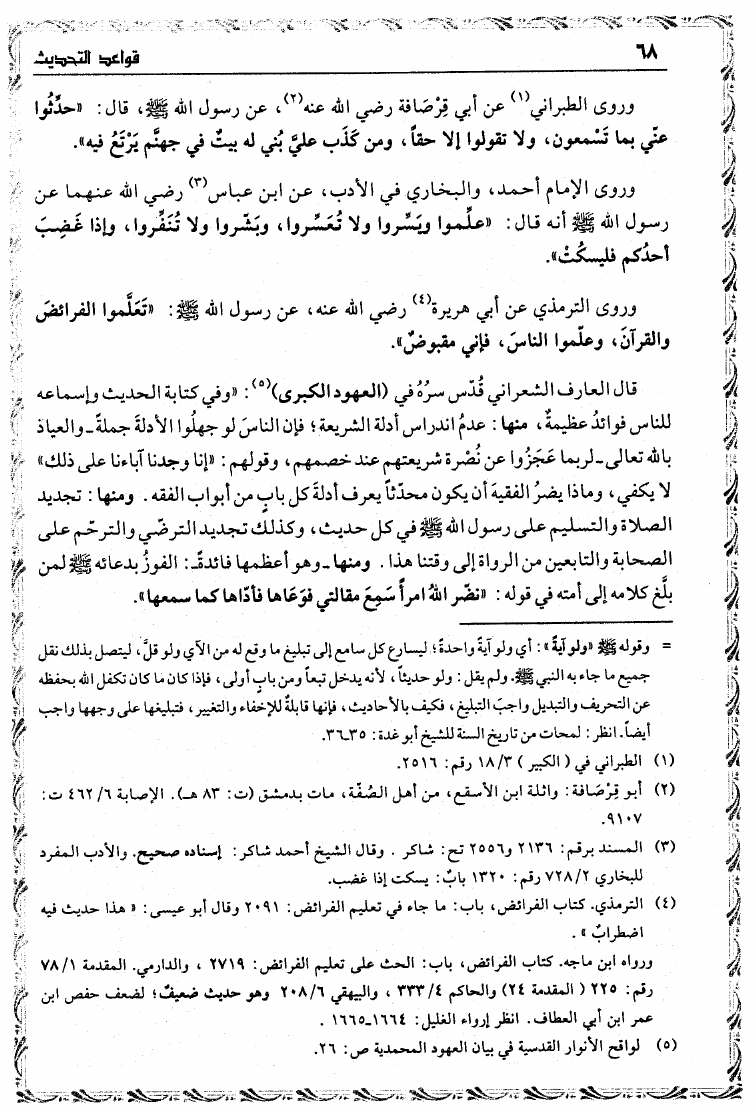 ٦٨
قواعد التحديث
وروى الطبراني(١) عن أبي قِرْصَافة رضي الله عنه(٢)، عن رسول الله ﷺ، قال: «حدِّثُوا
عنّي بما تَسْمعون، ولا تقولوا إلا حقاً، ومن كَذَب عليَّ بُني له بيتٌ في جهنَّم يَرْتَعُ فيه».
وروى الإمام أحمد، والبخاري في الأدب، عن ابن عباس(٣) رضي الله عنهما عن
رسول الله ﷺ أنه قال: «علِّموا ويَسِّروا ولا تُعَسِّروا، وبَشّروا ولا تُنَفِّروا، وإذا غَضِبَ
أحدُكم فليسكُتْ».
وروى الترمذي عن أبي هريرة(٤) رضي الله عنه، عن رسول الله ﷺ: «تَعَلَّموا الفرائضَ
والقرآنَ، وعلّموا الناسَ، فإني مقبوضٌ».
قال العارف الشعراني قُدّس سرُهُ في (العهود الكبرى)(٥): «وفي كتابة الحديث وإسماعه
للناس فوائدُ عظيمةٌ، منها: عدمُ اندراس أدلة الشريعة؛ فإن الناسَ لو جهلُوا الأدلةَ جملةً ـ والعياذ
بالله تعالى ـ لربما عَجَزُوا عن نُصْرة شريعتهم عند خصمهم، وقولهم: «إنا وجدنا آباءنا على ذلك»
لا يكفي، وماذا يضرُ الفقيهَ أن يكون محدّثاً يعرف أدلةَ كل بابٍ من أبواب الفقه. ومنها: تجديد
الصلاة والتسليم على رسول الله ﷺ في كل حديث، وكذلك تجديد الترضّي والترحّم على
الصحابة والتابعين من الرواة إلى وقتنا هذا. ومنها ـ وهو أعظمها فائدةـ: الفوزُ بدعائه ﷺ لمن
بلَّغ كلامه إلى أمته في قوله: «نضّر اللهُ امرأً سَمِعَ مقالتي فوَعَاها فأدّاها كما سمعها».
= وقوله ﷺ «ولو آيةً»: أي ولو آيةً واحدةً؛ ليسارع كل سامع إلى تبليغ ما وقع له من الآي ولو قلَّ، ليتصل بذلك نقل
جميع ما جاء به النبي ﷺ. ولم يقل: ولو حديثاً، لأنه يدخل تبعاً ومن بابٍ أولى، فإذا كان ما كان تكفل الله بحفظه
عن التحريف والتبديل واجبَ التبليغ، فكيف بالأحاديث، فإنها قابلةٌ للإخفاء والتغيير، فتبليغها على وجهها واجب
أيضاً. انظر: لمحات من تاريخ السنة للشيخ أبو غدة: ٣٥ـ٣٦.
(١) الطبراني في (الكبير) ١٨/٣ رقم: ٢٥١٦.
(٢) أبو قِرْصَافة: واثلة ابن الأسقع، من أهل الصُفّة، مات بدمشق (ت: ٨٣ هـ). الإصابة ٤٦٢/٦ ت:
٩١٠٧.
(٣) المسند برقم: ٢١٣٦ و٢٥٥٦ تح: شاكر. وقال الشيخ أحمد شاكر: إسناده صحيح. والأدب المفرد
للبخاري ٧٢٨/٢ رقم: ١٣٢٠ بابُ: يسكت إذا غضب.
(٤) الترمذي. كتاب الفرائض، باب: ما جاء في تعليم الفرائض: ٢٠٩١ وقال أبو عيسى: « هذا حديث فيه
اضطرابٌ ».
ورواه ابن ماجه. كتاب الفرائض، باب: الحث على تعليم الفرائض: ٢٧١٩ ، والدارمي. المقدمة ٧٨/١
رقم: ٢٢٥ ( المقدمة ٢٤) والحاكم ٣٣٣/٤ ، والبيهقي ٢٠٨/٦ وهو حديث ضعيفٌ؛ لضعف حفص ابن
عمر ابن أبي العطاف. انظر إرواء الغليل: ١٦٦٤ـ١٦٦٥ .
(٥) لواقح الأنوار القدسية في بيان العهود المحمدية ص: ٢٦.